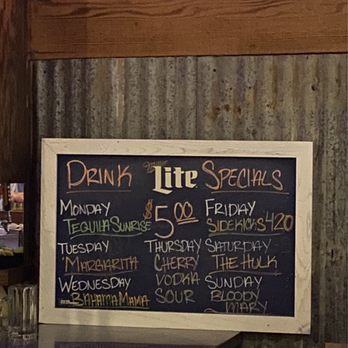 DRINK Lite SPECIALS
MONDAY
TEQUILA SUNRISE
TUESDAY
MARGARITA
WEDNESDAY
BAHAMA MAMA
5.00
THURSDAY
CHERRY
VODKA
SOUR
FRIDAY
SIDEKICKS 4.20
SATURDAY
THE HULK
SUNDAY
BLOODY
MARY